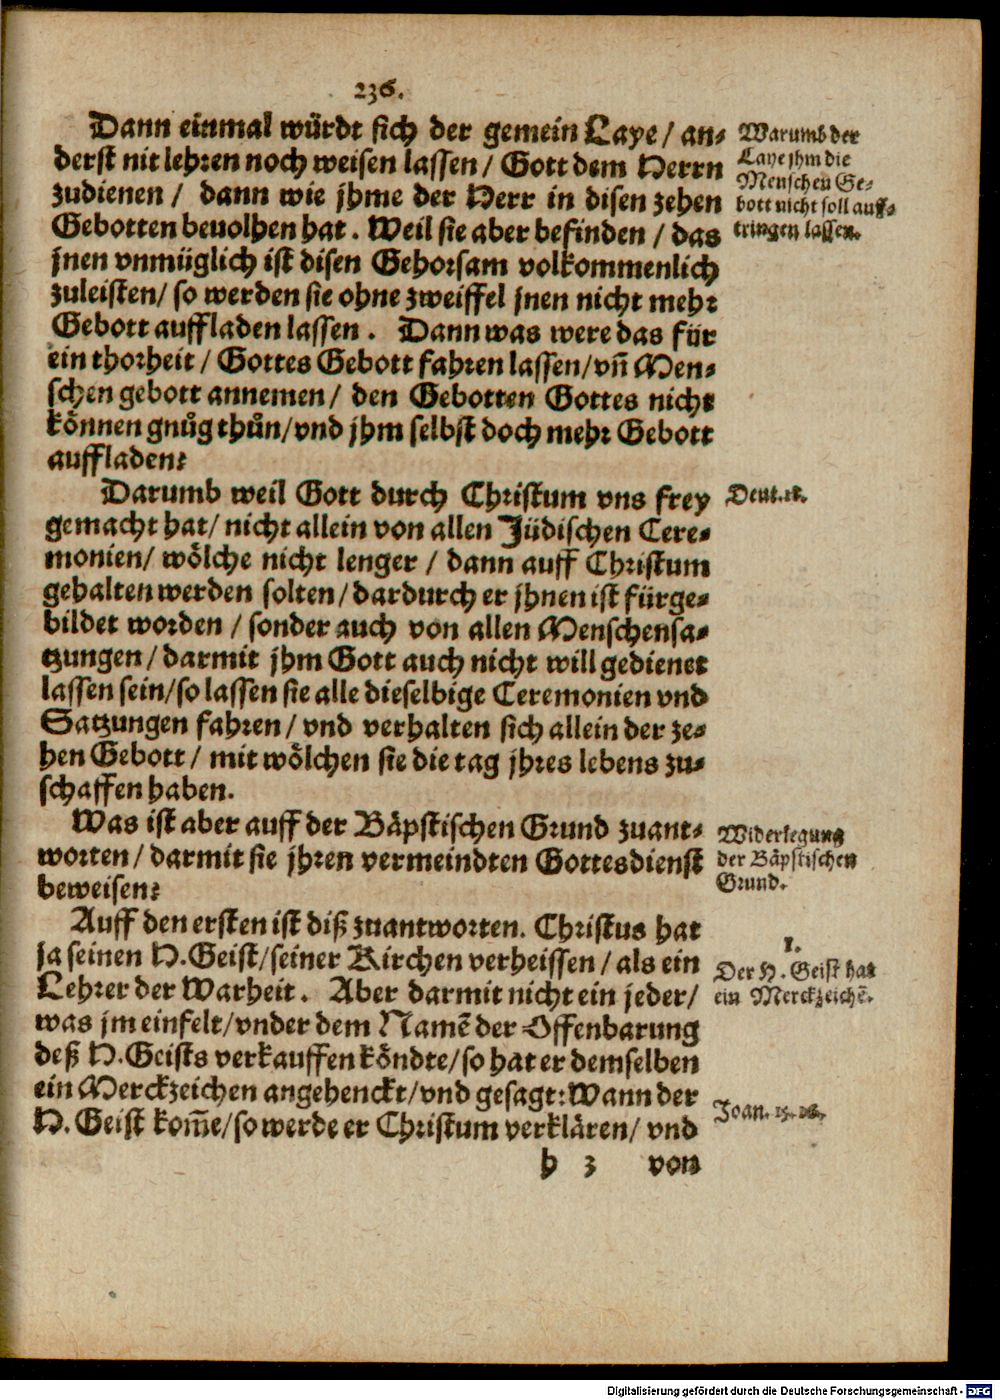 236.
Dann einmal würdt sich der gemein Laye / an-
derst nit lehren noch weisen lassen / Gott dem Herrn
zudienen / dann wie jhme der Herr in disen zehen
Gebotten beuolhen hat. Weil sie aber befinden / das
jnen vnmüglich ist disen Gehorsam volkommenlich
zuleisten / so werden sie ohne zweiffel jnen nicht mehr
Gebott auffladen lassen. Dann was were das für
ein thorheit / Gottes Gebott fahren lassen / vñ Men-
schen gebott annemen / den Gebotten Gottes nicht
können gnůg thůn / vnd jhm selbst doch mehr Gebott
auffladen?
Warumb der
Laye jhm die
Menschen Ge-
bott nicht soll auff-
tringen lassen.
Darumb weil Gott durch Christum vns frey
gemacht hat / nicht allein von allen Jüdischen Cere-
monien / wölche nicht lenger / dann auff Christum
gehalten werden solten / dardurch er jhnen ist fürge-
bildet worden / sonder auch von allen Menschensa-
tzungen / darmit jhm Gott auch nicht will gedienet
lassen sein / so lassen sie alle dieselbige Ceremonien vnd
Satzungen fahren / vnd verhalten sich allein der ze-
hen Gebott / mit wölchen sie die tag jhres lebens zu-
schaffen haben.
Deut.
Was ist aber auff der Bäpstischen Grund zuant-
worten / darmit sie jhren vermeindten Gottesdienst
beweisen?
Widerlegung
der Bäpstischen
Grund.
Auff den ersten ist diß zuantworten. Christus hat
ja seinen H. Geist / seiner Kirchen verheissen / als ein
Lehrer der Warheit. Aber darmit nicht ein jeder /
was jm einfelt / vnder dem Namẽ der Offenbarung
deß H. Geists verkauffen köndte / so hat er demselben
ein Merckzeichen angehenckt / vnd gesagt: Wann der
H. Geist kom̃e / so werde er Christum verklären / vnd
1.
Der H. Geist hat
ein Merckzeichẽ.
Joan. 15. 16.
h 3 von
Digitalisierung gefördert durch die Deutsche Forschungsgemeinschaft - DFG